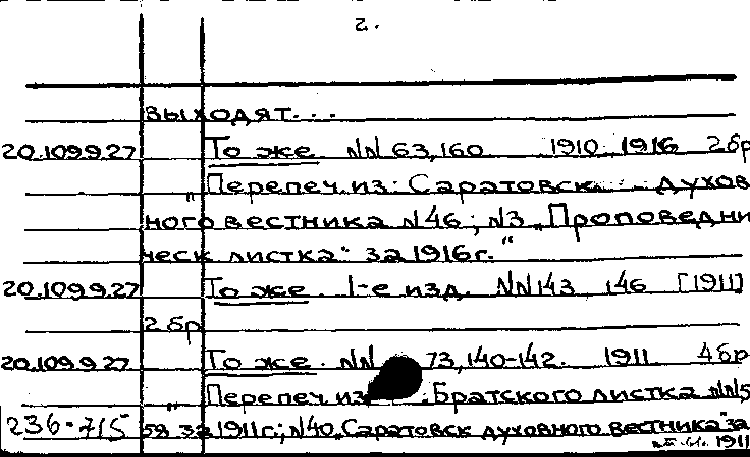 2.
выходят...
20.109.9.27 То же. NN 63,160 1910, 1916 2 бр
„Перепеч. из: Саратовск. духов
ного вестника N46; N3 „Проповедни
ческ листка" за 1916г."
20.109.9.27 То же. 1-е изд. NN 143 146 [1911]
2 бр
20.109.9.27 То же. NN 73,140-142. 1911 4 бр
„Перепеч из Братского листка NN5
236-715 58 за 1911г.; N40 „Саратовск духовного вестника" за
1911